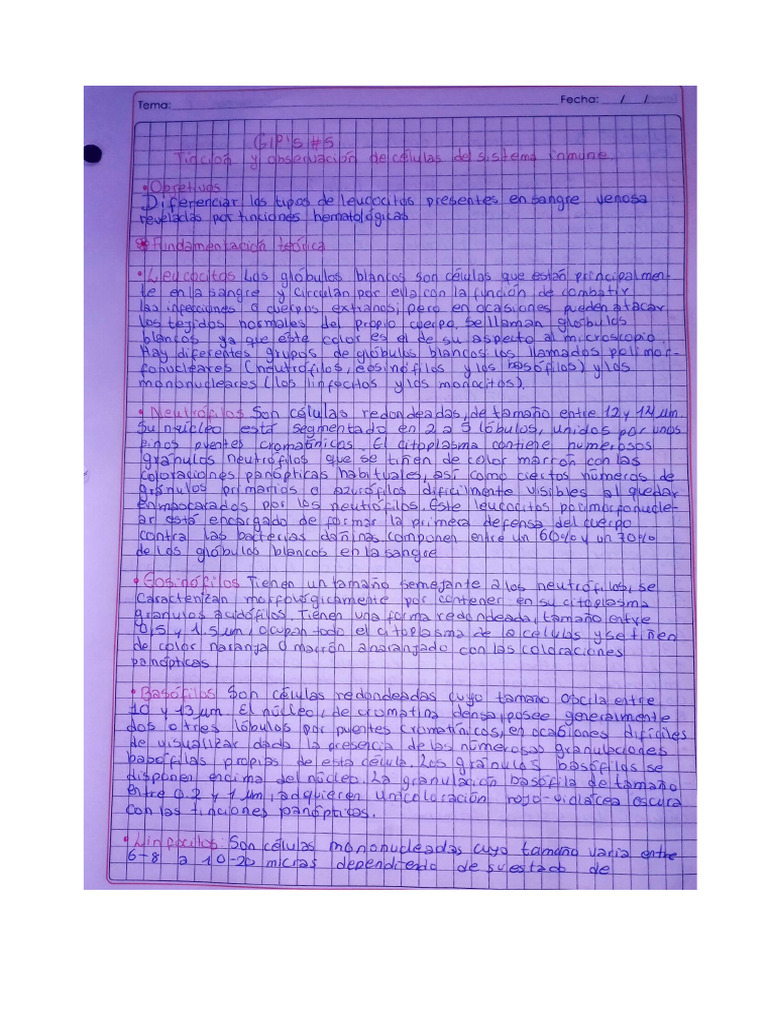 Tema:
Fecha: / /
GIP'S #5
Tinción y observación de células del sistema inmune.
• Objetivos
Diferenciar los tipos de leucocitos presentes en sangre venosa
reveladas por tinciones hematológicas
Fundamentación teórica
• Leucocitos Los glóbulos blancos son células que están principalmen-
te en la sangre y circulan por ella con la función de combatir
las infecciones o cuerpos extraños; pero en ocasiones pueden atacar
los tejidos normales del propio cuerpo. Se llaman glóbulos
blancos ya que éste color es el de su aspecto al microscopio.
Hay diferentes grupos de glóbulos blancos: los llamados polimor-
fonucleares (neutrófilos, eosinófilos y los basófilos) y los
mononucleares (los linfocitos y los monocitos).
• Neutrófilos Son células redondeadas, de tamaño entre 12 y 14 µm.
Su núcleo está segmentado en 2 a 5 lóbulos, unidos por unos
finos puentes cromatínicos. El citoplasma contiene numerosos
gránulos neutrófilos que se tiñen de color marrón con las
coloraciones panópticas habituales, así como ciertos números de
gránulos primarios o azurófilos dificilmente visibles al quedar
enmascarados por los neutrófilos. Este leucocitos polimorfonucle-
ar está encargado de formar la primera defensa del cuerpo
contra las bacterias dañinas componen entre un 60% y un 70%
de los glóbulos blancos en la sangre
• Eosinófilos Tienen un tamaño semejante a los neutrófilos, se
caracterizan morfológicamente por contener en su citoplasma
granulos acidófilos. Tienen una forma redondeada, tamaño entre
0,5 y 1.5 µm, ocupan todo el citoplasma de la células y se tiñen
de color naranja o marrón anaranjado con las coloraciones
panópticas
• Basófilos Son células redondeadas cuyo tamaño oscila entre
10 y 13 µm El núcleo, de cromatina densa, posee generalmente
dos o tres lóbulos por puentes cromatínicos, en ocasiones difíciles
de visualizar dada la presencia de las númerosas granulaciones
basófilas propias de esta célula. Los gránulos basófilos se
disponen encima del núcleo. La granulación basófila de tamaño
entre 0.2 y 1 µm, adquieren una coloración rojo-violácea oscura
con las tinciones panópticos.
• Linfocitos: Son células mononucleadas cuyo tamaño varia entre
6-8 a 10-20 micras dependiendo de su estado de